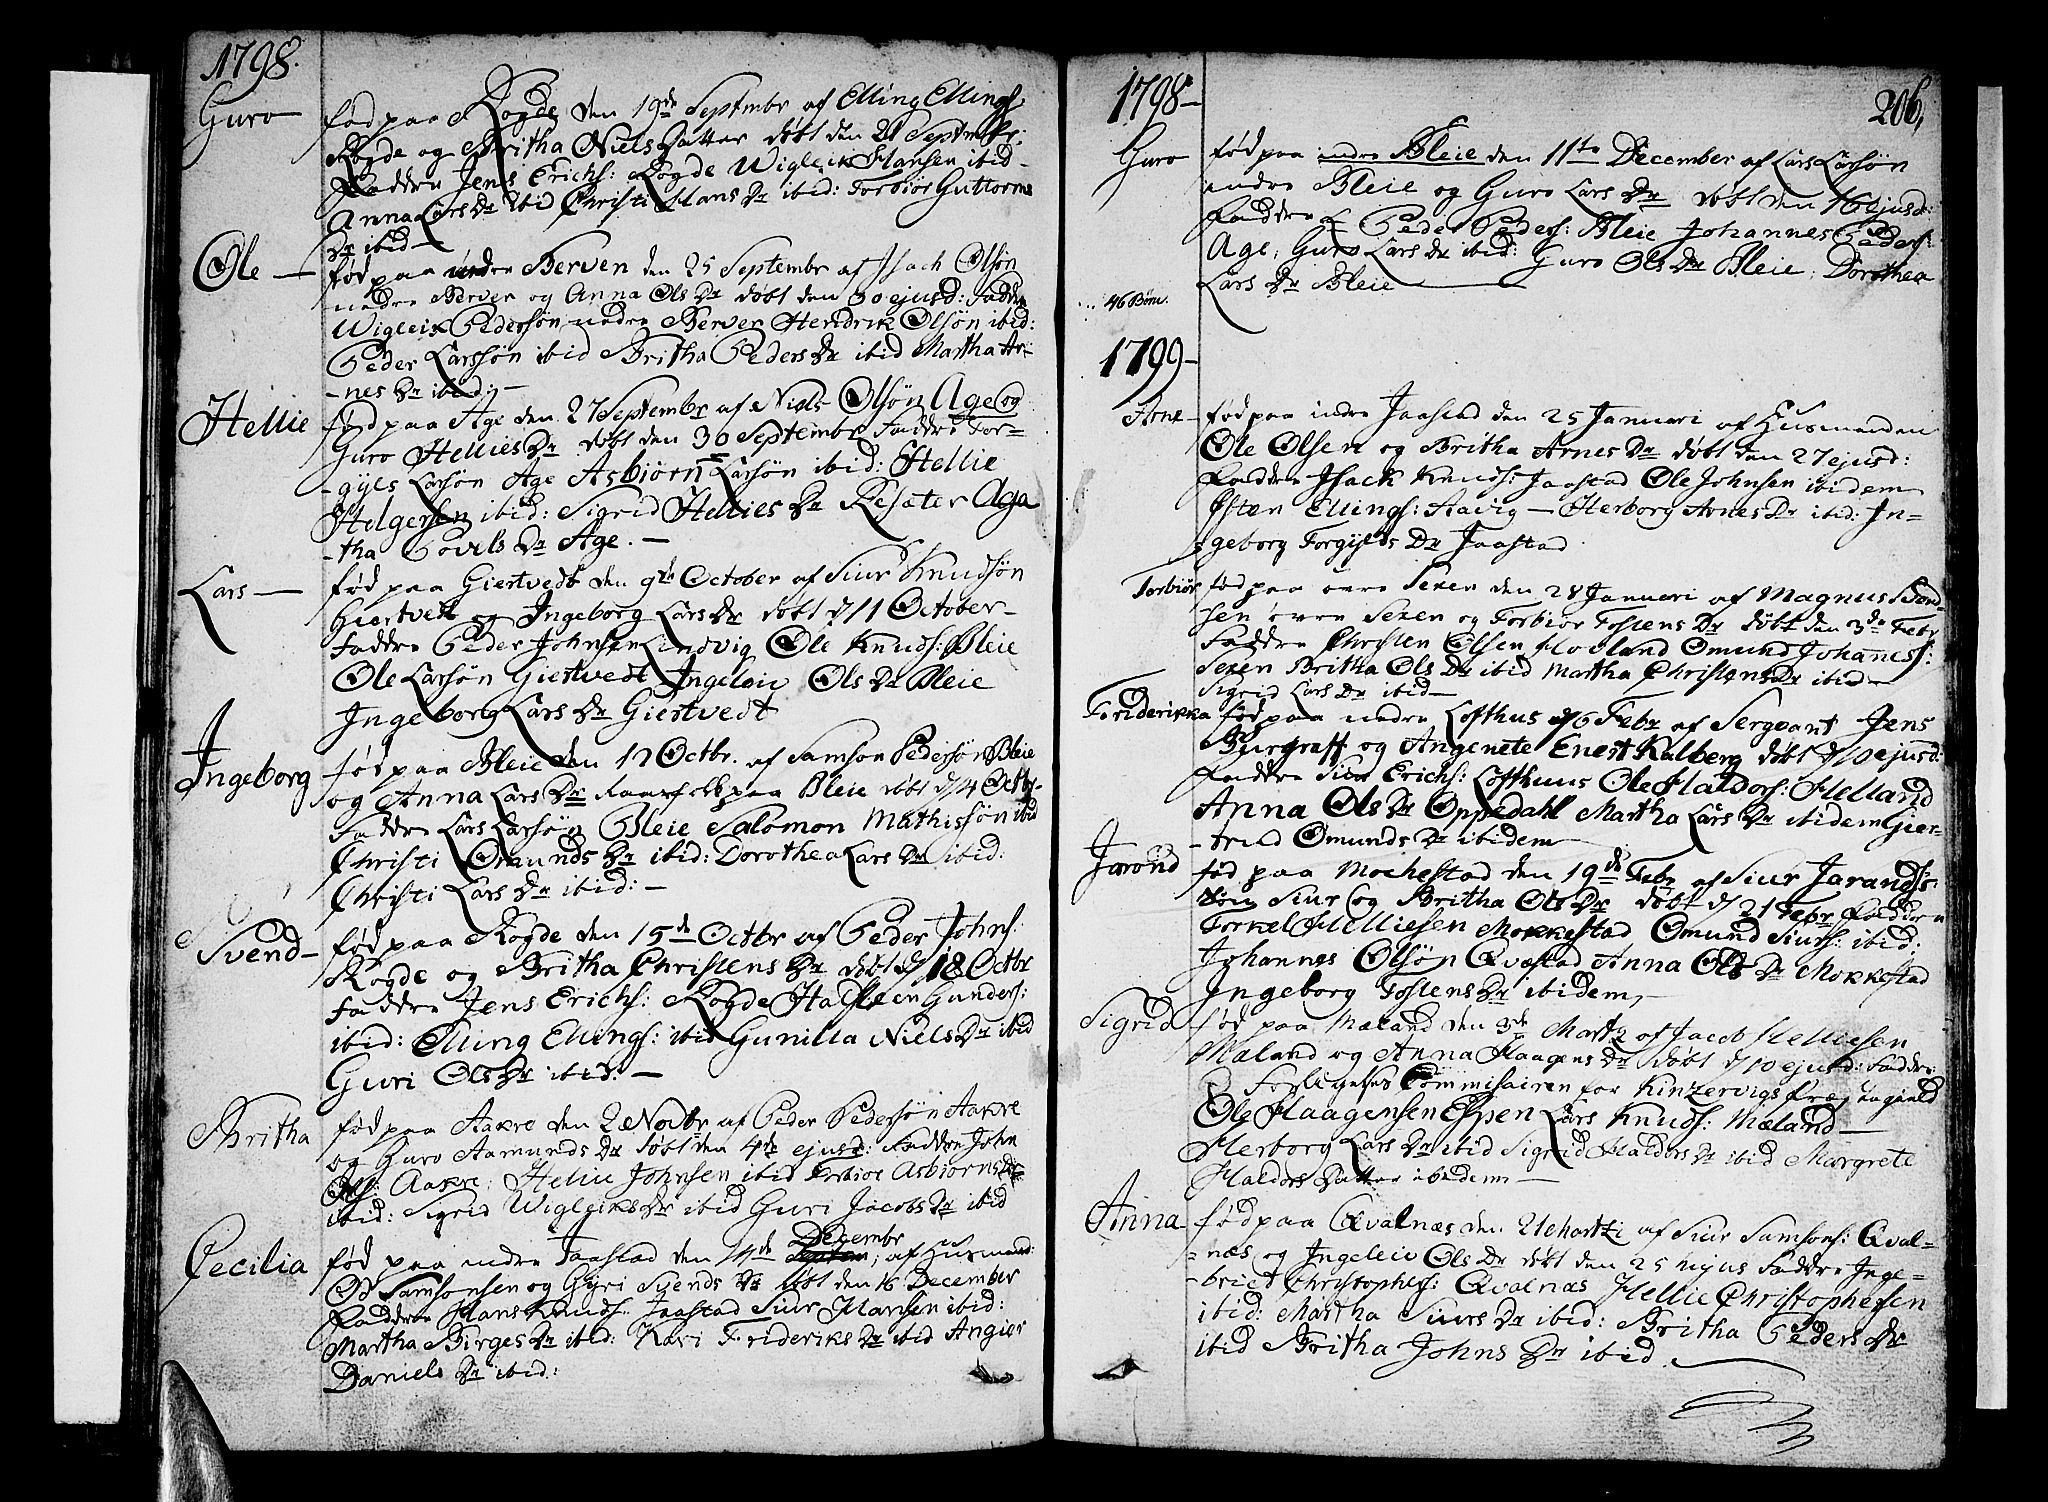 1798.
Guro fød paa Rogde den 19de Septembr af Elling Ellings
Rogde og Britha Niels Datter døbt den 21 Septembr:
Faddre Jens Erichs: Rogde Wigleik Hansen ibid
Anna Lars Dr ibid Christi Hans Dr ibid: Torbiør Guttorms
Dr ibid
Ole fød paa nedre Berven den 25 Septembr af Isach Olsøn
nedre Berven og Anna Ols Dr døbt den 30 ejusd: Faddre
Wigleik Pedersøn nedre Berven Hendrik Olsøn ibid:
Peder Larssøn ibid Britha Peders Dr ibid Martha Ar-
-nes Dr ibid: -
Hellie fød paa Age den 27 Septembr af Niels Olsøn Age og
Guro Hellies Dr døbt den 30 Septembr Faddre Tor-
-gyls Larsøn Age Asbiørn Larsøn ibid: Hellie
Helgersen ibid: Sigrid Hellies Dr Resæter Aga
-tha Povels Dr Age. -
Lars fød paa Giertvedt den 9de October af Siur Knudsøn
Giertvett og Ingeborg Lars Dr døbt d 11 October
Faddre Peder Johnsen Lindvig Ole Knuds: Bleie
Ole Larsøn Giertvedt Ingeleiv Ols Dr Bleie
Ingeborg Lars Dr Giertvedt
Ingeborg fød paa Bleie den 12 Octbr. af Samson Pedersøn Bleie
og Anna Lars Dr Kaarfolk paa Bleie døbt d 14 Octbr.
Faddre Lars Larsøn Bleie Salomon Mathissøn ibid
Christi Omunds Dr ibid: Dorothea Lars Dr ibid:
Christi Lars Dr ibid: -
Svend fød paa Rogde den 15de Octbr af Peder Johns:
Rogde og Britha Christens Dr døbt d 18 Octbr
Faddre Jens Erichs: Rogde Halsteen Gunders:
ibid: Elling Ellings: ibid Gunilla Niels Dr ibid
Guri Ols Dr ibid: -
Britha fød paa Aakre den 2 Novbr af Peder Pedersøn Aakre
og Guro Aamunds Dr døbt den 4de ejusd: Faddre John
Ols: Aakre: Hellie Johnsen ibid Torbiør Asbiørns Dr
ibid: Sigrid Wigleiks Dr ibid Guri Jacobs Dr ibid
Cecilia fød paa nedre Jaastad den 14de Decembr af Husmand:
Od Samsonsen og Gyri Svends Dr døbt den 16 December
Faddre Hans Knuds: Jaastad Siur Hansen ibid:
Martha Birges Dr ibid: Kari Frideriks Dr ibid Angier
Daniels Dr ibid:
1798 206,
Guro fød paa indre Bleie den 11te December af Lars Larsøn
indre Bleie og Guro Lars Dr døbt den 16 ejusd:
Faddre Peder Peders: Bleie Johannes Peders:
Age, Guro Lars Dr ibid: Guro Ols Dr Bleie, Dorothea
Lars Dr Bleie
46 Børn.
1799
Arne fød paa indre Jaastad den 25 Januari af Husmanden
Ole Olsen og Britha Arnes Dr døbt den 27 ejusd:
Faddre Isack Knuds: Jaastad Ole Johnsen ibidem
Østen Ellings: Aavig Herborg Arnes Dr ibid: In-
geborg Torgylds Dr Jaastad
Torbiør fød paa øvre Sexen den 28 Januari af Magnus Svend-
sen øvre Sexen og Torbiør Tostens Dr døbt den 3de Febr
Faddre Christen Olsen Hovland Omund Johannes:
Sexen Britha Ols Dr ibid Martha Christens Dr ibid
Sigrid Lars Dr ibid
Friderikka fød paa nedre Lofthus d 6 Febr af Sergeant Jens
Burgraff og Angenete Enert Kalberg døbt d 10 ejusd:
Faddre Siur Erichs: Lofthuus Ole Haldors: Helland
Anna Ols Dr Oppedahl Martha Lars Dr ibidem Gier-
-trud Omunds Dr ibidem
Jarond fød paa Mochestad den 19de Febr af Siur Jarands:
Siur og Britha Ols Dr døbt d 21 Febr Faddre
Torkel Helliesen Mokkestad Omund Siurs: ibid:
Johannes Olsøn Qvæstad Anna Ols Dr Mokkestad
Ingeborg Tostens Dr ibidem
Sigrid fød paa Mæland den 3de Martz af Jacob Helliesen
Mæland og Anna Haagens Dr døbt d 10 ejusd: Faddre:
Forligelses Commisairen for Kinzervigs Præstegield
Ole Haagensen Espen Lars Knuds: Mæland
Herborg Lars Dr ibid Sigrid Haldors Dr ibid Margrete
Haldors Datter ibidem
Anna fød paa Qvalnæs den 21 Martzi af Siur Samsons: Qval-
-næs og Ingeleiv Ols Dr døbt den 25 hujus Faddre Inge-
-briet Christophers: Qvalnæs Hellie Christophersen
ibid: Martha Siurs Dr ibid: Britha Peders Dr
ibid Britha Johns Dr ibid